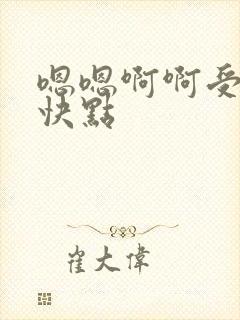 嗯嗯啊啊受
快點
崔大偉